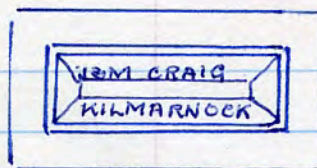 J&M CRAIG
KILMARNOCK